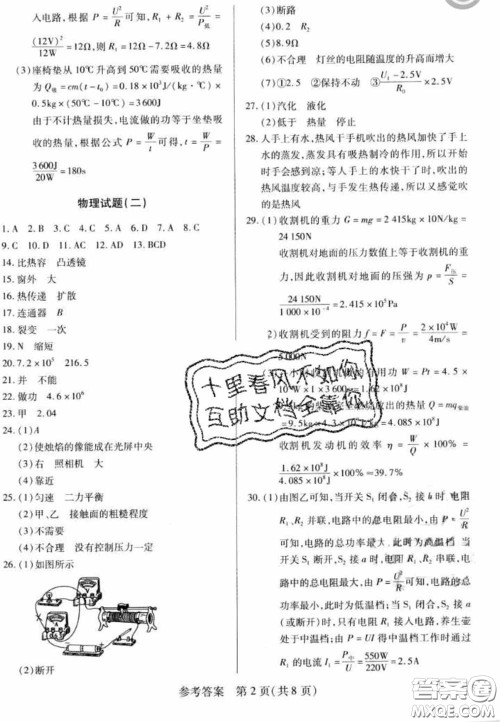 人电路，根据 P = U²/R 可知，R₁ + R₂ = U²/P机
= (12V)²/12W = 12Ω 则 R₁ = 12Ω - 7.2Ω = 4.8Ω
(3)座椅垫从 10℃升高到 50℃需要吸收的热量
为 Q吸 = cm(t - t₀) = 0.18×10³J/(kg·℃)×
0.5kg×(50℃ - 10℃) = 3 600J
由于不计热量损失，电流做的功等于坐垫吸
收的热量，根据公式 P = W/t 可得，t = W/P =
3 600J/20W = 180s
物理试题(二)
1. A 2. B 3. C 4. C 5. A 6. B 7. C 8. A
9. C 10. D 11. AC 12. AD 13. BCD
14. 比热容 凸透镜
15. 窗外 大
16. 热传递 扩散
17. 连通器 B
18. 裂变 一次
19. N 缩短
20. 7.2×10⁵ 216.5
21. 并 不能
22. 做功 4.6×10⁶
23. 甲 2.04
24. (1)A
(2)使烛焰的像能成在光屏中央
(3)右 照相机 大
(4)靠近
25. (1)匀速 二力平衡
(2)甲、乙 接触面的粗糙程度
(3)不需要
(4)不合理 没有控制压力一定
26. (1)如图所示
(2)断开
(3)断路
(4)0.2
(5)8.9Ω
(6)不合理 灯丝的电阻随温度的升高而增大
(7)①2.5 ②保持不动 ③(U₁ - 2.5V)/R₀ ×2.5V
27. (1)汽化 液化
(2)低于 热量 停止
28. 人手上有水，热风干手机吹出的热风加快了手上
水的蒸发，蒸发具有吸热制冷的作用，所以开始
时手会感到凉；等人手上的水快干了时，吹出的
热风温度较高，与手发生热传递，所以又感觉吹
的是热风
29. (1)收割机的重力 G = mg = 2 415kg×10N/kg =
24 150N
收割机对地面的压力数值上等于收割机的重
力，因此收割机对地面的压强为 p = F压/S =
24 150N/(1 000×10⁻⁴) = 2.415×10⁵Pa
(2)收割机受到的阻力 f = F = P/v = 2×10⁴W/4m/s =
5 000N
功 W = Pt = 4.5×
放出的热量 Q = mq
= 9.5kg×4.3×10⁷J/kg = 4.085×10⁸J
收割机发动机的效率 η = W/Q×100% =
1.62×10⁸J/4.085×10⁸J ×100% ≈ 39.7%
30. (1)由图乙可知，当开关 S₁ 闭合，S₂ 接 b 时，电阻
R₁、R₂ 并联，电路中的总电阻最小，由 P = U²/R
可知，电路的总功率最大，此时为高温档；当开
关 S₁ 断开，S₂ 接 a 时，电阻 R₁、R₂ 串联，电
路中的总电阻最大，由 P = U²/R 可知，电路的总
功率最小，此时为低温档；当 S₁ 闭合，S₂ 接 a
(或断开)时，只有电阻 R₁ 接入电路，养生壶
处于中温档；由 P = UI 得中温档工作时通过
R₁ 的电流 I₁ = P中/U = 550W/220V = 2.5A
十里春风不如你
互助文档全靠你
参考答案 第 2 页(共 8 页)